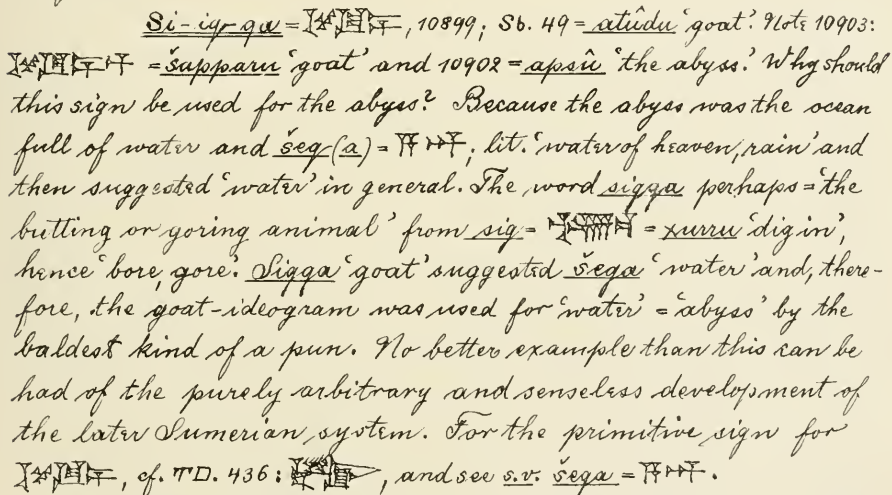 Si-iq-qa = , 10899; Sb. 49 = atûdu 'goat'. Note 10903:
= šapparu 'goat' and 10902 = apsû 'the abyss.' Why should
this sign be used for the abyss? Because the abyss was the ocean
full of water and šeg(a) = 𒀀𒀭; lit. 'water of heaven, rain' and
then suggested 'water' in general. The word sigga perhaps = 'the
butting or goring animal' from sig = = xurru 'dig in',
hence 'bore, gore'. Sigga 'goat' suggested šega 'water' and, there-
fore, the goat-ideogram was used for 'water' = 'abyss' by the
baldest kind of a pun. No better example than this can be
had of the purely arbitrary and senseless development of
the later Sumerian system. For the primitive sign for
, cf. TD. 436: , and see s.v. šega = 𒀀𒀭.